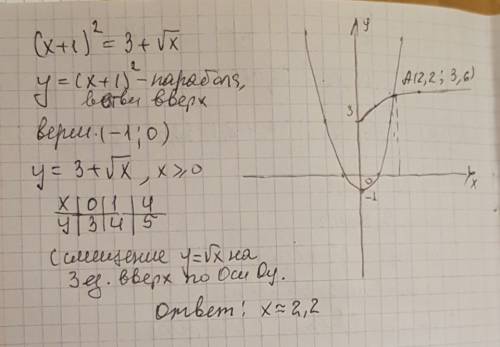 (x+1)² = 3+√x
y=(x+1)² - парабола,
ветви вверх
верш. (-1; 0)
y = 3+√x, x ⩾ 0
x | 0 | 1 | 4
y | 3 | 4 | 5
Смещение y=√x на
3 ед. вверх по Оси Oy.
Ответ: x ≈ 2,2
y
A(2,2; 3,6)
3
0
x
-1